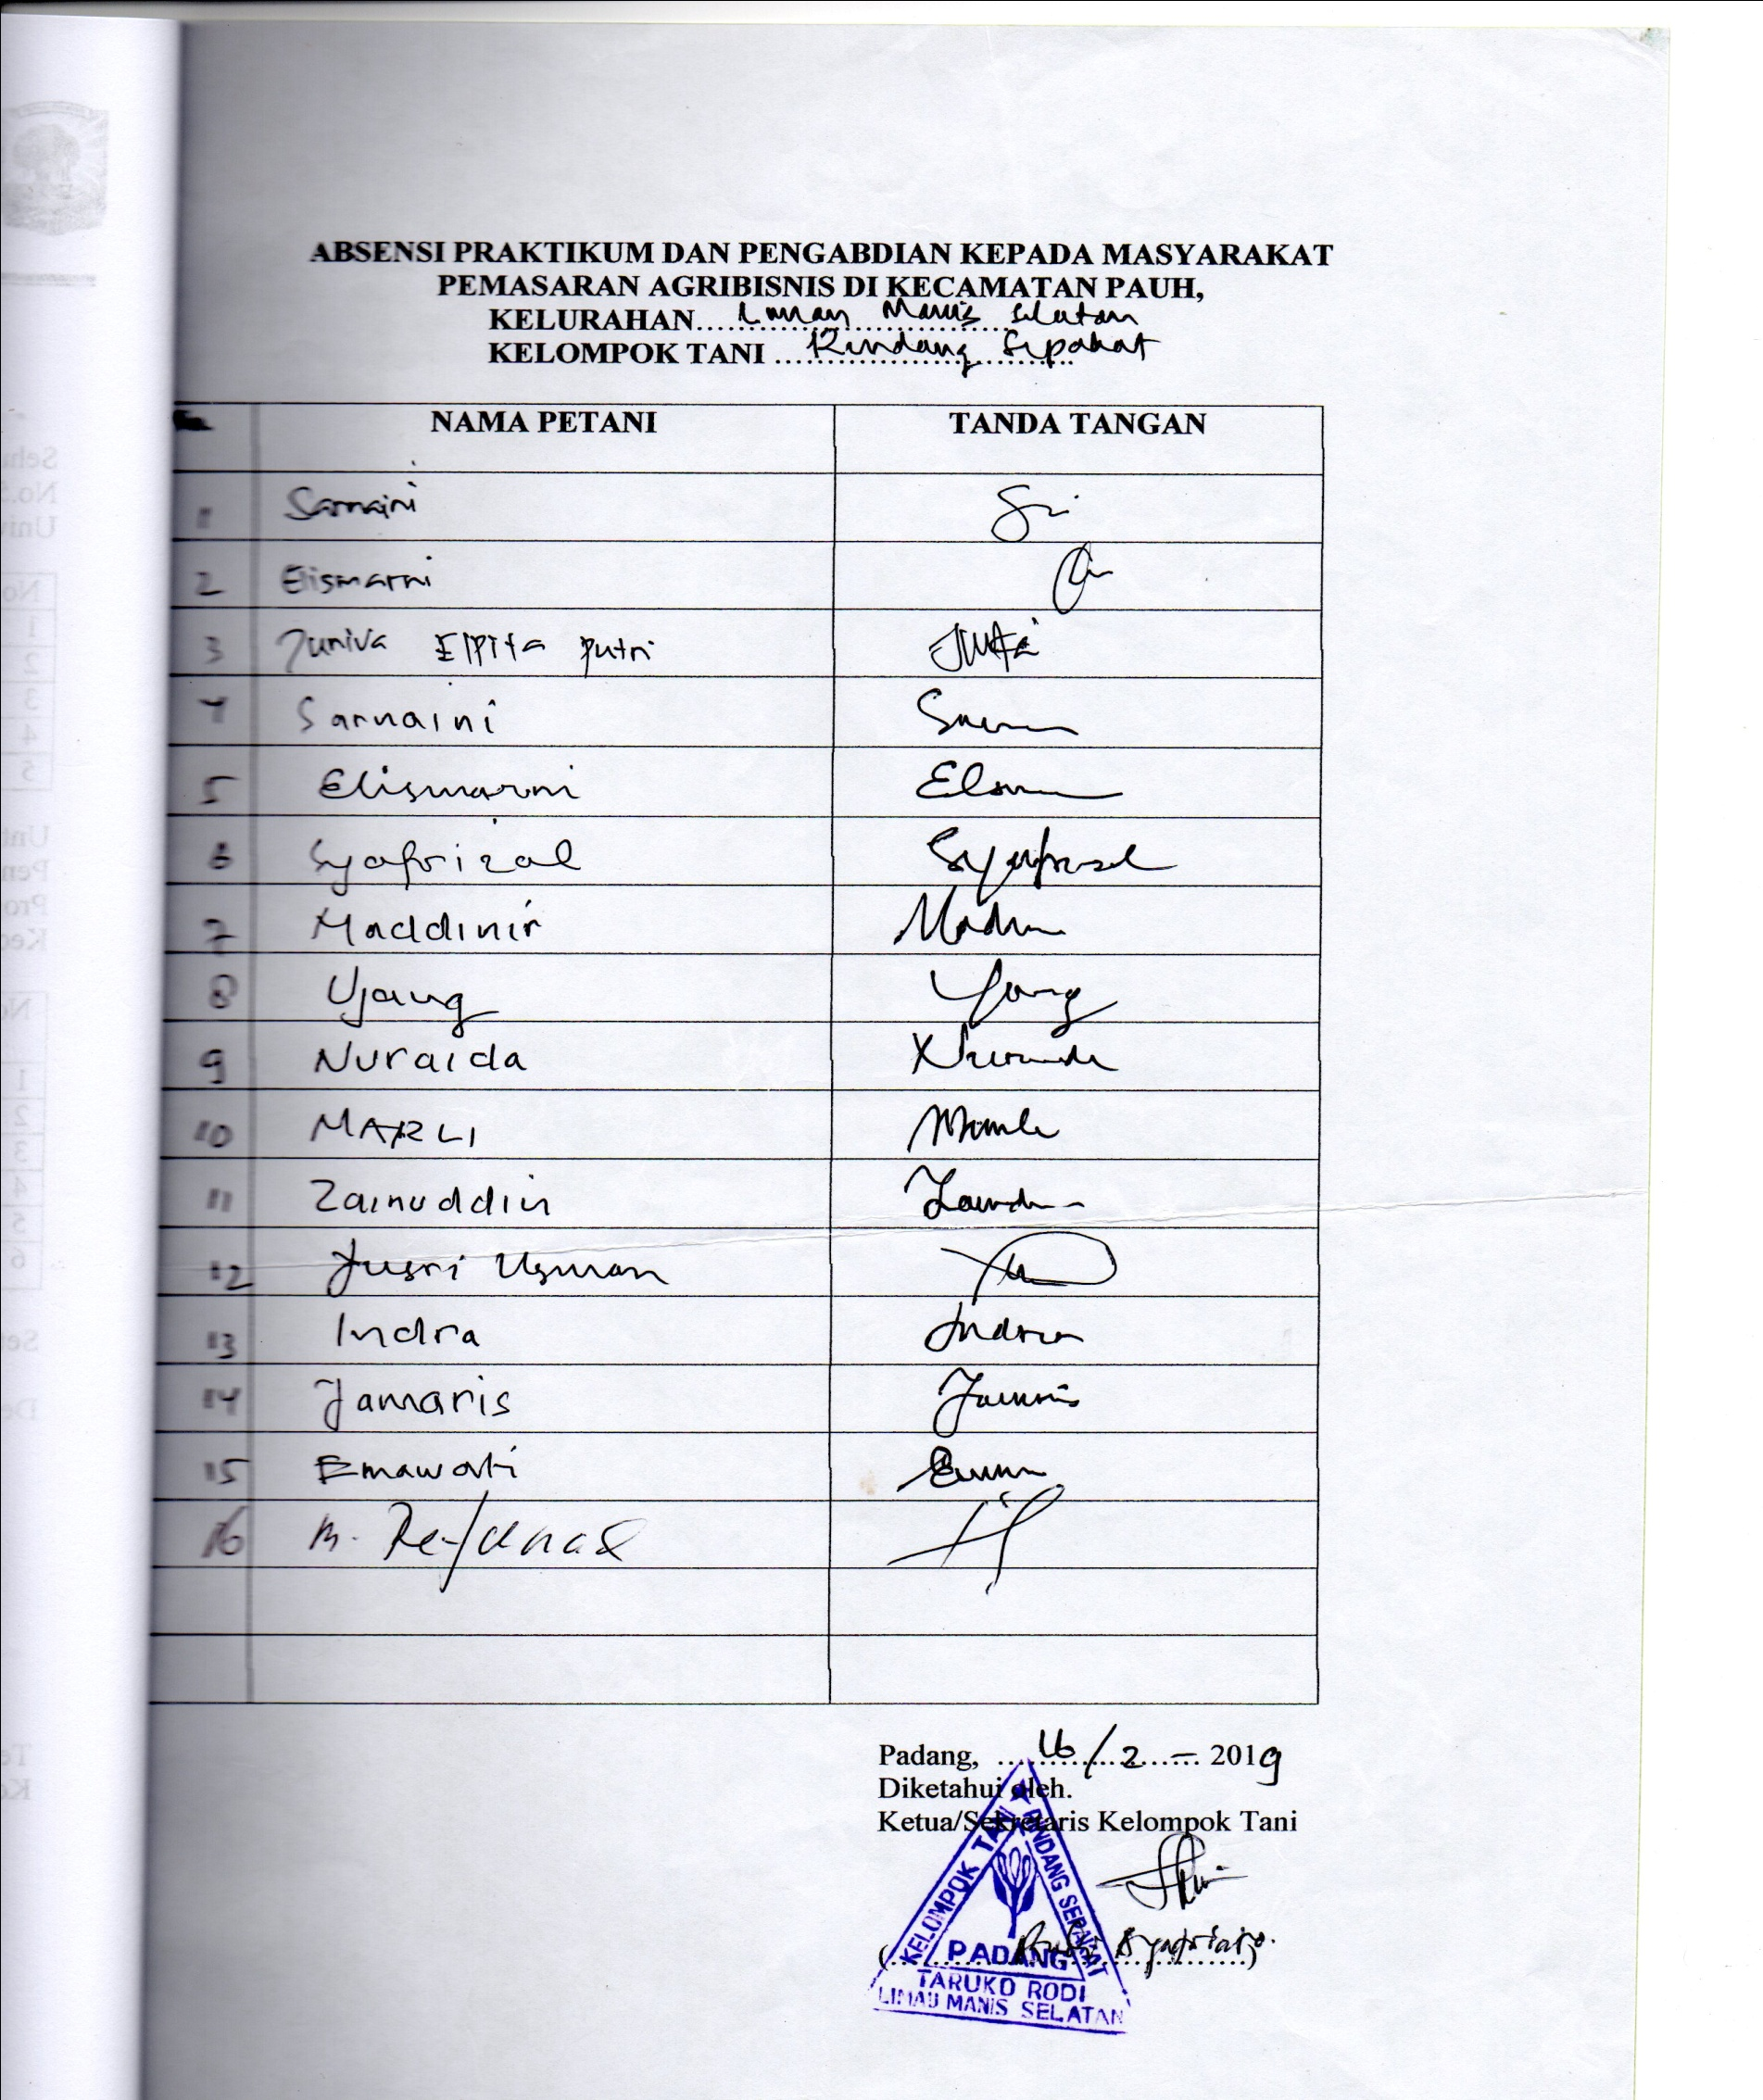 ABSENSI PRAKTIKUM DAN PENGABDIAN KEPADA MASYARAKAT
PEMASARAN AGRIBISNIS DI KECAMATAN PAUH,
KELURAHAN.... Limau Manis Selatan
KELOMPOK TANI .... Rindang Sepakat
NAMA PETANI TANDA TANGAN
1 Sarnaini
2 Elismarni
3 Juniva Elpita putri
4 Sarnaini
5 Elismarni
6 Syafrizal Syafrizal
7 Maddinir
8 Ujang
9 Nuraida
10 MARLI
11 Zainuddin
12 Jusri Usman
13 Indra Indra
14 Jamaris Jamaris
15 Emawati
16 M.
Padang, .... 16/2 - 2019
Diketahui oleh.
Ketua/Sekretaris Kelompok Tani
KELOMPOK TANI RINDANG SEPAKAT
PADANG
TARUKO RODI
LIMAU MANIS SELATAN